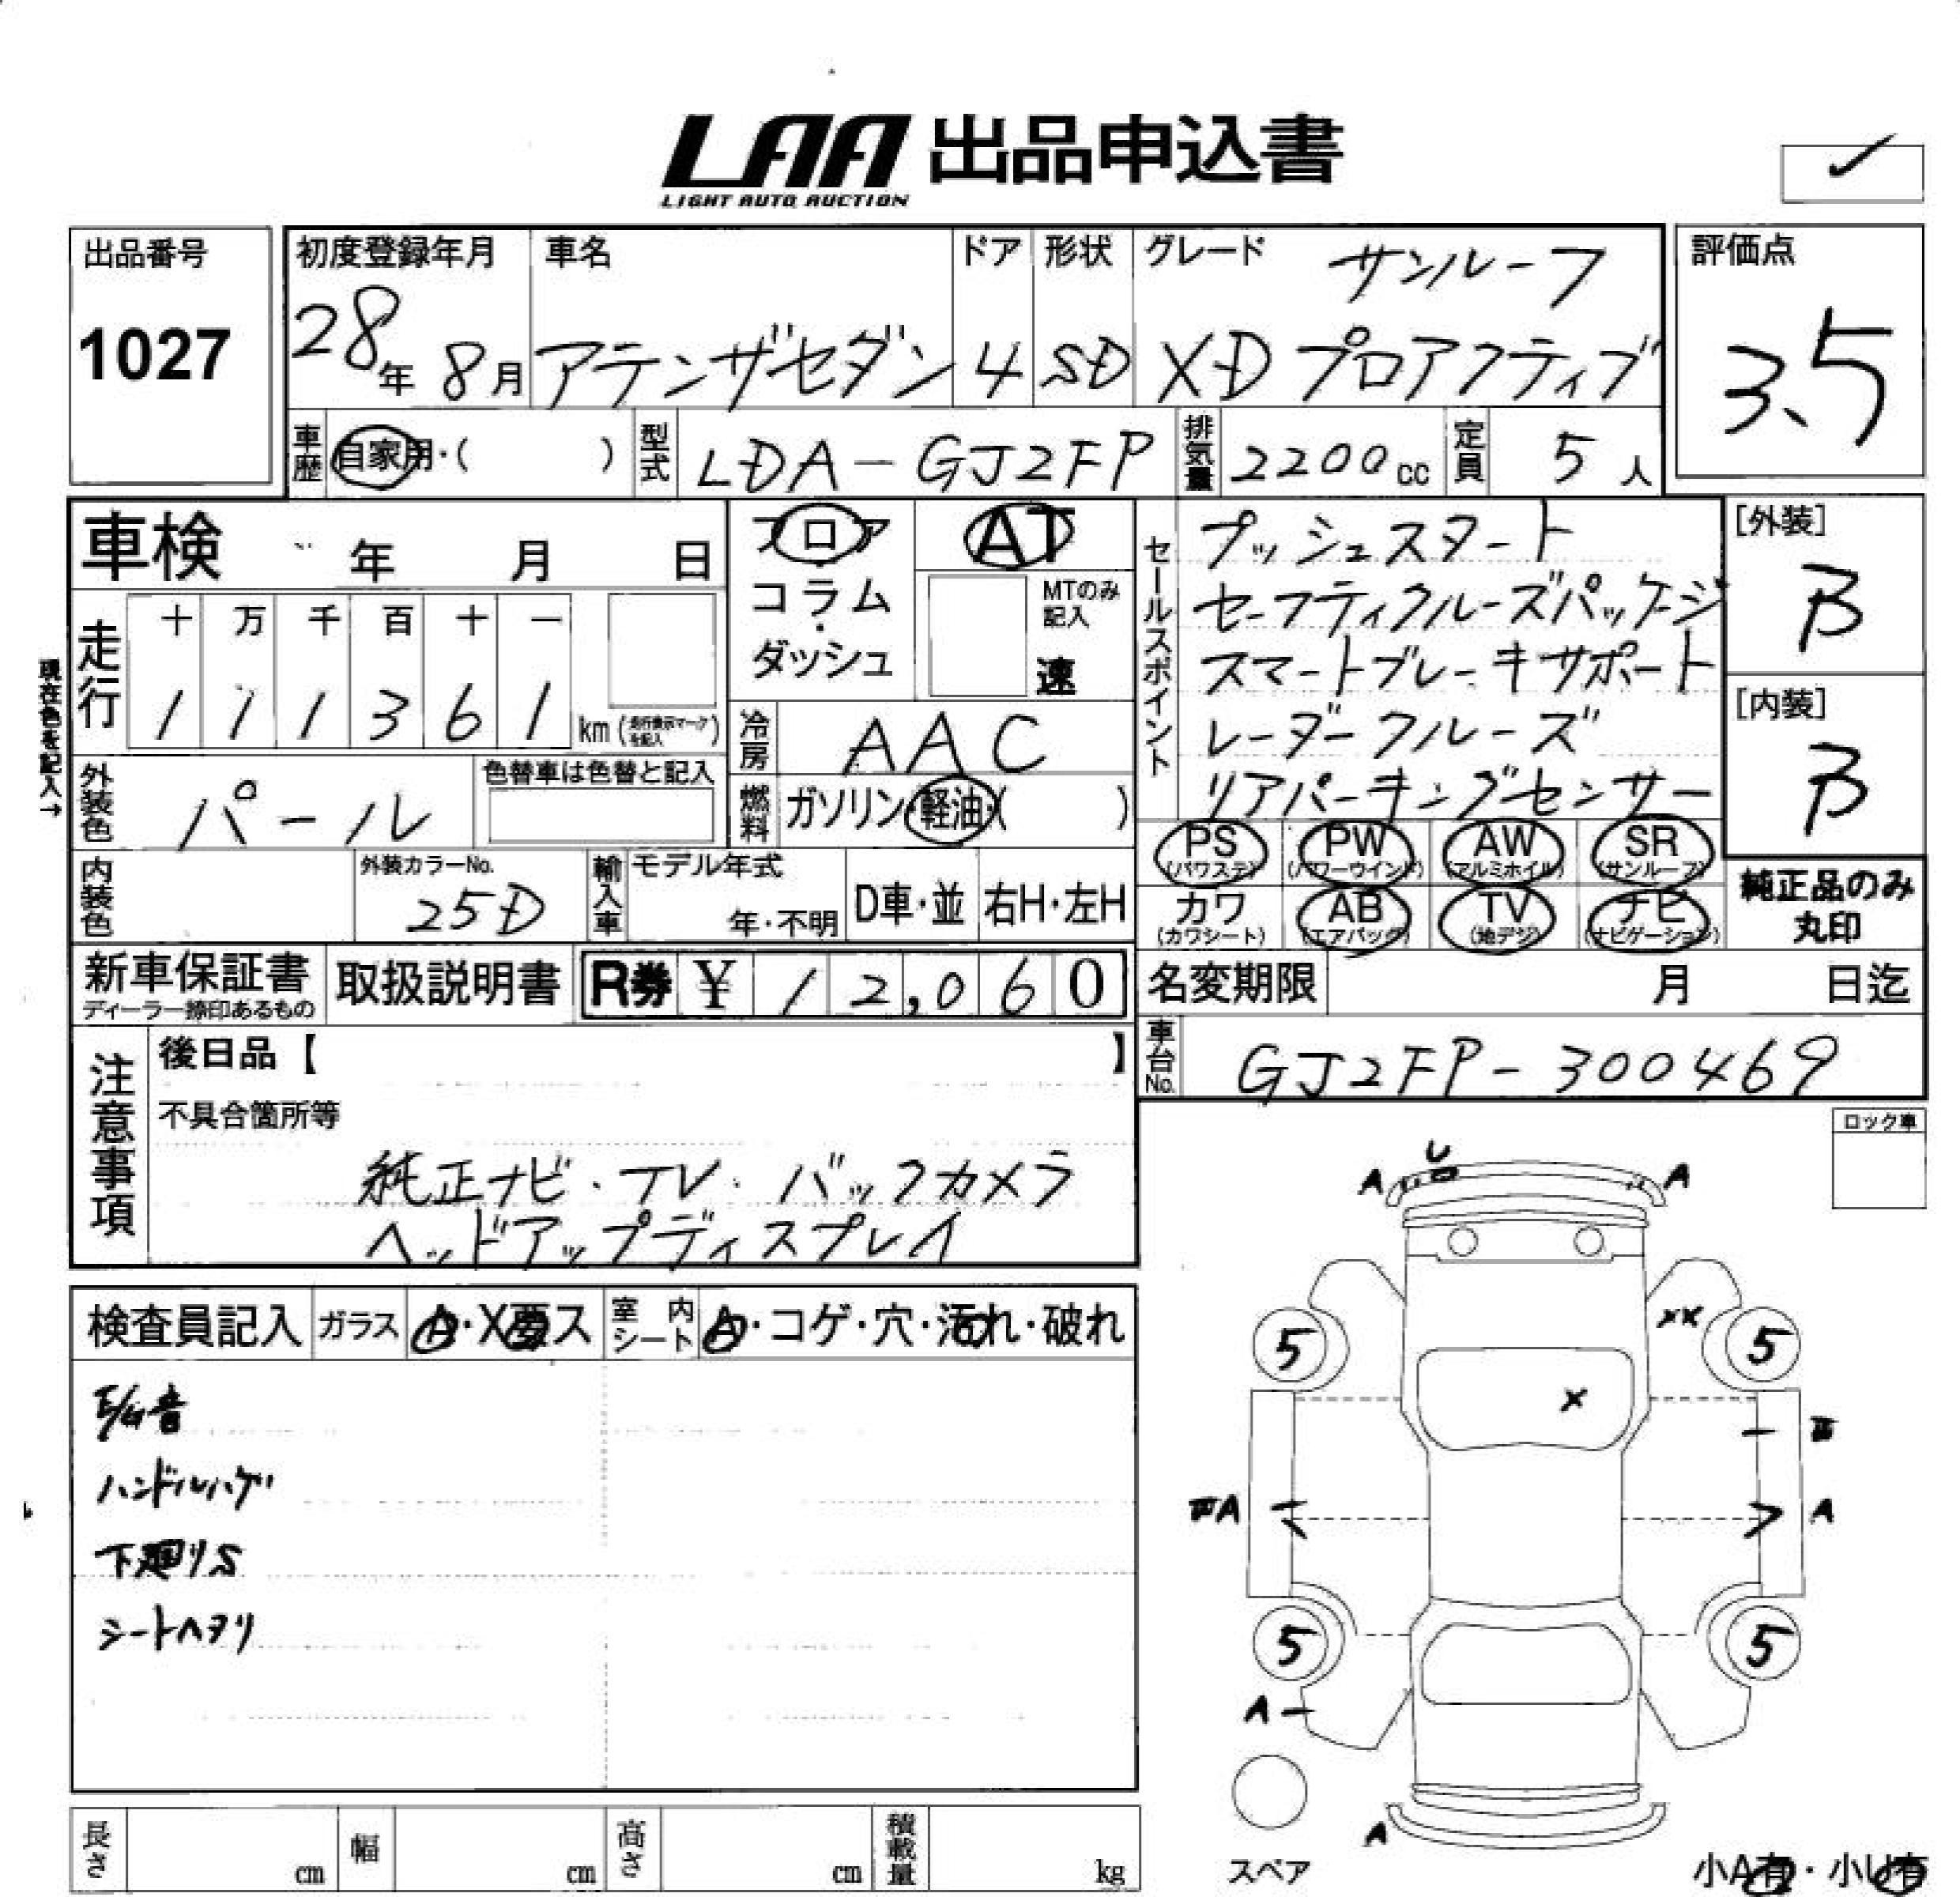 LAA 出品申込書
LIGHT AUTO AUCTION
出品番号
1027
初度登録年月
28年 8月
車名
アテンザセダン
ドア
4
形状
SD
グレード サンルーフ
XD プロアクティブ
評価点
3.5
車歴 自家用・( )
型式 LDA-GJ2FP
排気量 2200cc
定員 5人
車検 年 月 日
フロア
コラム
・
ダッシュ
AT
MTのみ
記入
速
セールスポイント
プッシュスタート
セーフティクルーズパッケージ
スマートブレーキサポート
レーダークルーズ
リアパーキングセンサー
[外装]
B
[内装]
B
現在色を記入→
走行
十 万 千 百 十 一
1 1 1 3 6 1 km(走行表示マークを記入)
冷房 AAC
外装色 パール
色替車は色替と記入
燃料 ガソリン・軽油・( )
PS
(パワステ)
PW
(パワーウインド)
AW
(アルミホイル)
SR
(サンルーフ)
カワ
(カワシート)
AB
(エアバック)
TV
(地デジ)
ナビ
(ナビゲーション)
純正品のみ
丸印
内装色
外装カラーNo.
25D
輸入車
モデル年式
年・不明
D車・並
右H・左H
新車保証書
ディーラー捺印あるもの
取扱説明書
R券 ¥ 12,060
名変期限 月 日迄
車台No. GJ2FP-300469
注意事項
後日品【 】
不具合箇所等
純正ナビ・TV・バックカメラ
ヘッドアップディスプレイ
ロック車
検査員記入
ガラス A・X要ス
室内シート A・コゲ・穴・汚れ・破れ
E/G音
ハンドルハゲ
下廻りS
シートヘタリ
U
A
A
XX
5
5
X
A
A
5
5
A
A
スペア
小A有・小U有
長さ cm
幅 cm
高さ cm
積載量 kg